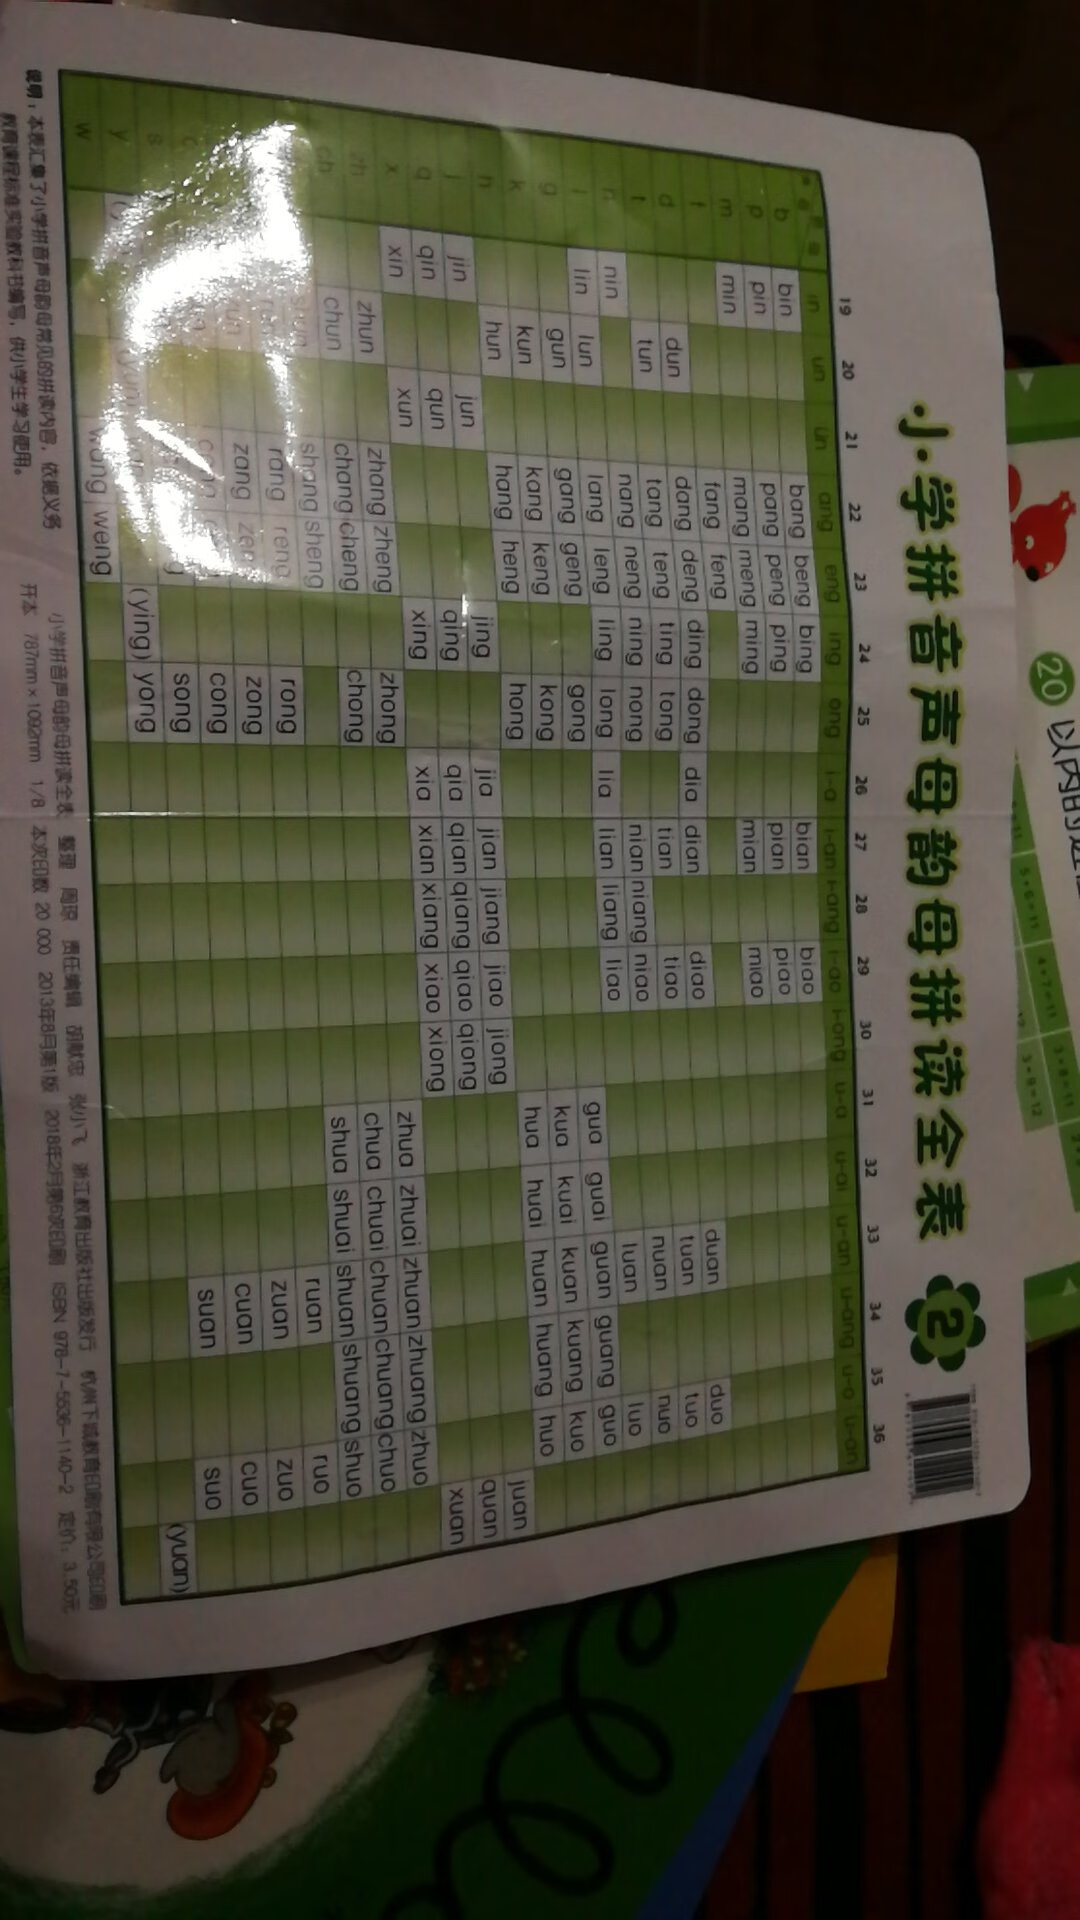 小学拼音声母韵母拼读全表 2
19 20 21 22 23 24 25 26 27 28 29 30 31 32 33 34 35 36
in un ün ang eng ing ong i-a i-an i-ang i-ao i-ong u-a u-ai u-an u-ang u-o ü-an
b bin bang beng bing bian biao
p pin pang peng ping pian piao
m min mang meng ming mian miao
f fang feng
d dun dang deng ding dong dia dian diao duan duo
t tun tang teng ting tong tian tiao tuan tuo
n nin nang neng ning nong nian niang niao nuan nuo
l lin lun lang leng ling long lia lian liang liao luan luo
g gun gang geng gong gua guai guan guang guo
k kun kang keng kong kua kuai kuan kuang kuo
h hun hang heng hong hua huai huan huang huo
j jin jun jing jia jian jiang jiao jiong juan
q qin qun qing qia qian qiang qiao qiong quan
x xin xun xing xia xian xiang xiao xiong xuan
zh zhun zhang zheng zhong zhua zhuai zhuan zhuang zhuo
ch chun chang cheng chong chua chuai chuan chuang chuo
shang sheng shua shuai shuan shuang shuo
rang reng rong ruan ruo
zang zong zuan zuo
c cong cuan cuo
s song suan suo
y (ying) yong (yuan)
w wang weng
说明：本表汇集了小学拼音声母韵母常见的拼读内容，依据义务
教育课程标准实验教科书编写，供小学生学习使用。
小学拼音声母韵母拼读全表 整理 周琼 责任编辑 胡献忠 张小飞 浙江教育出版社出版发行 杭州下城教育印刷有限公司印刷
开本 787mm×1092mm 1/8 本次印数 20 000 2013年8月第1版 2018年2月第6次印刷 ISBN 978-7-5536-1140-2 定价：3.50元
20 以内的
5+6=11 4+7=11 3+8=11
3+9=12